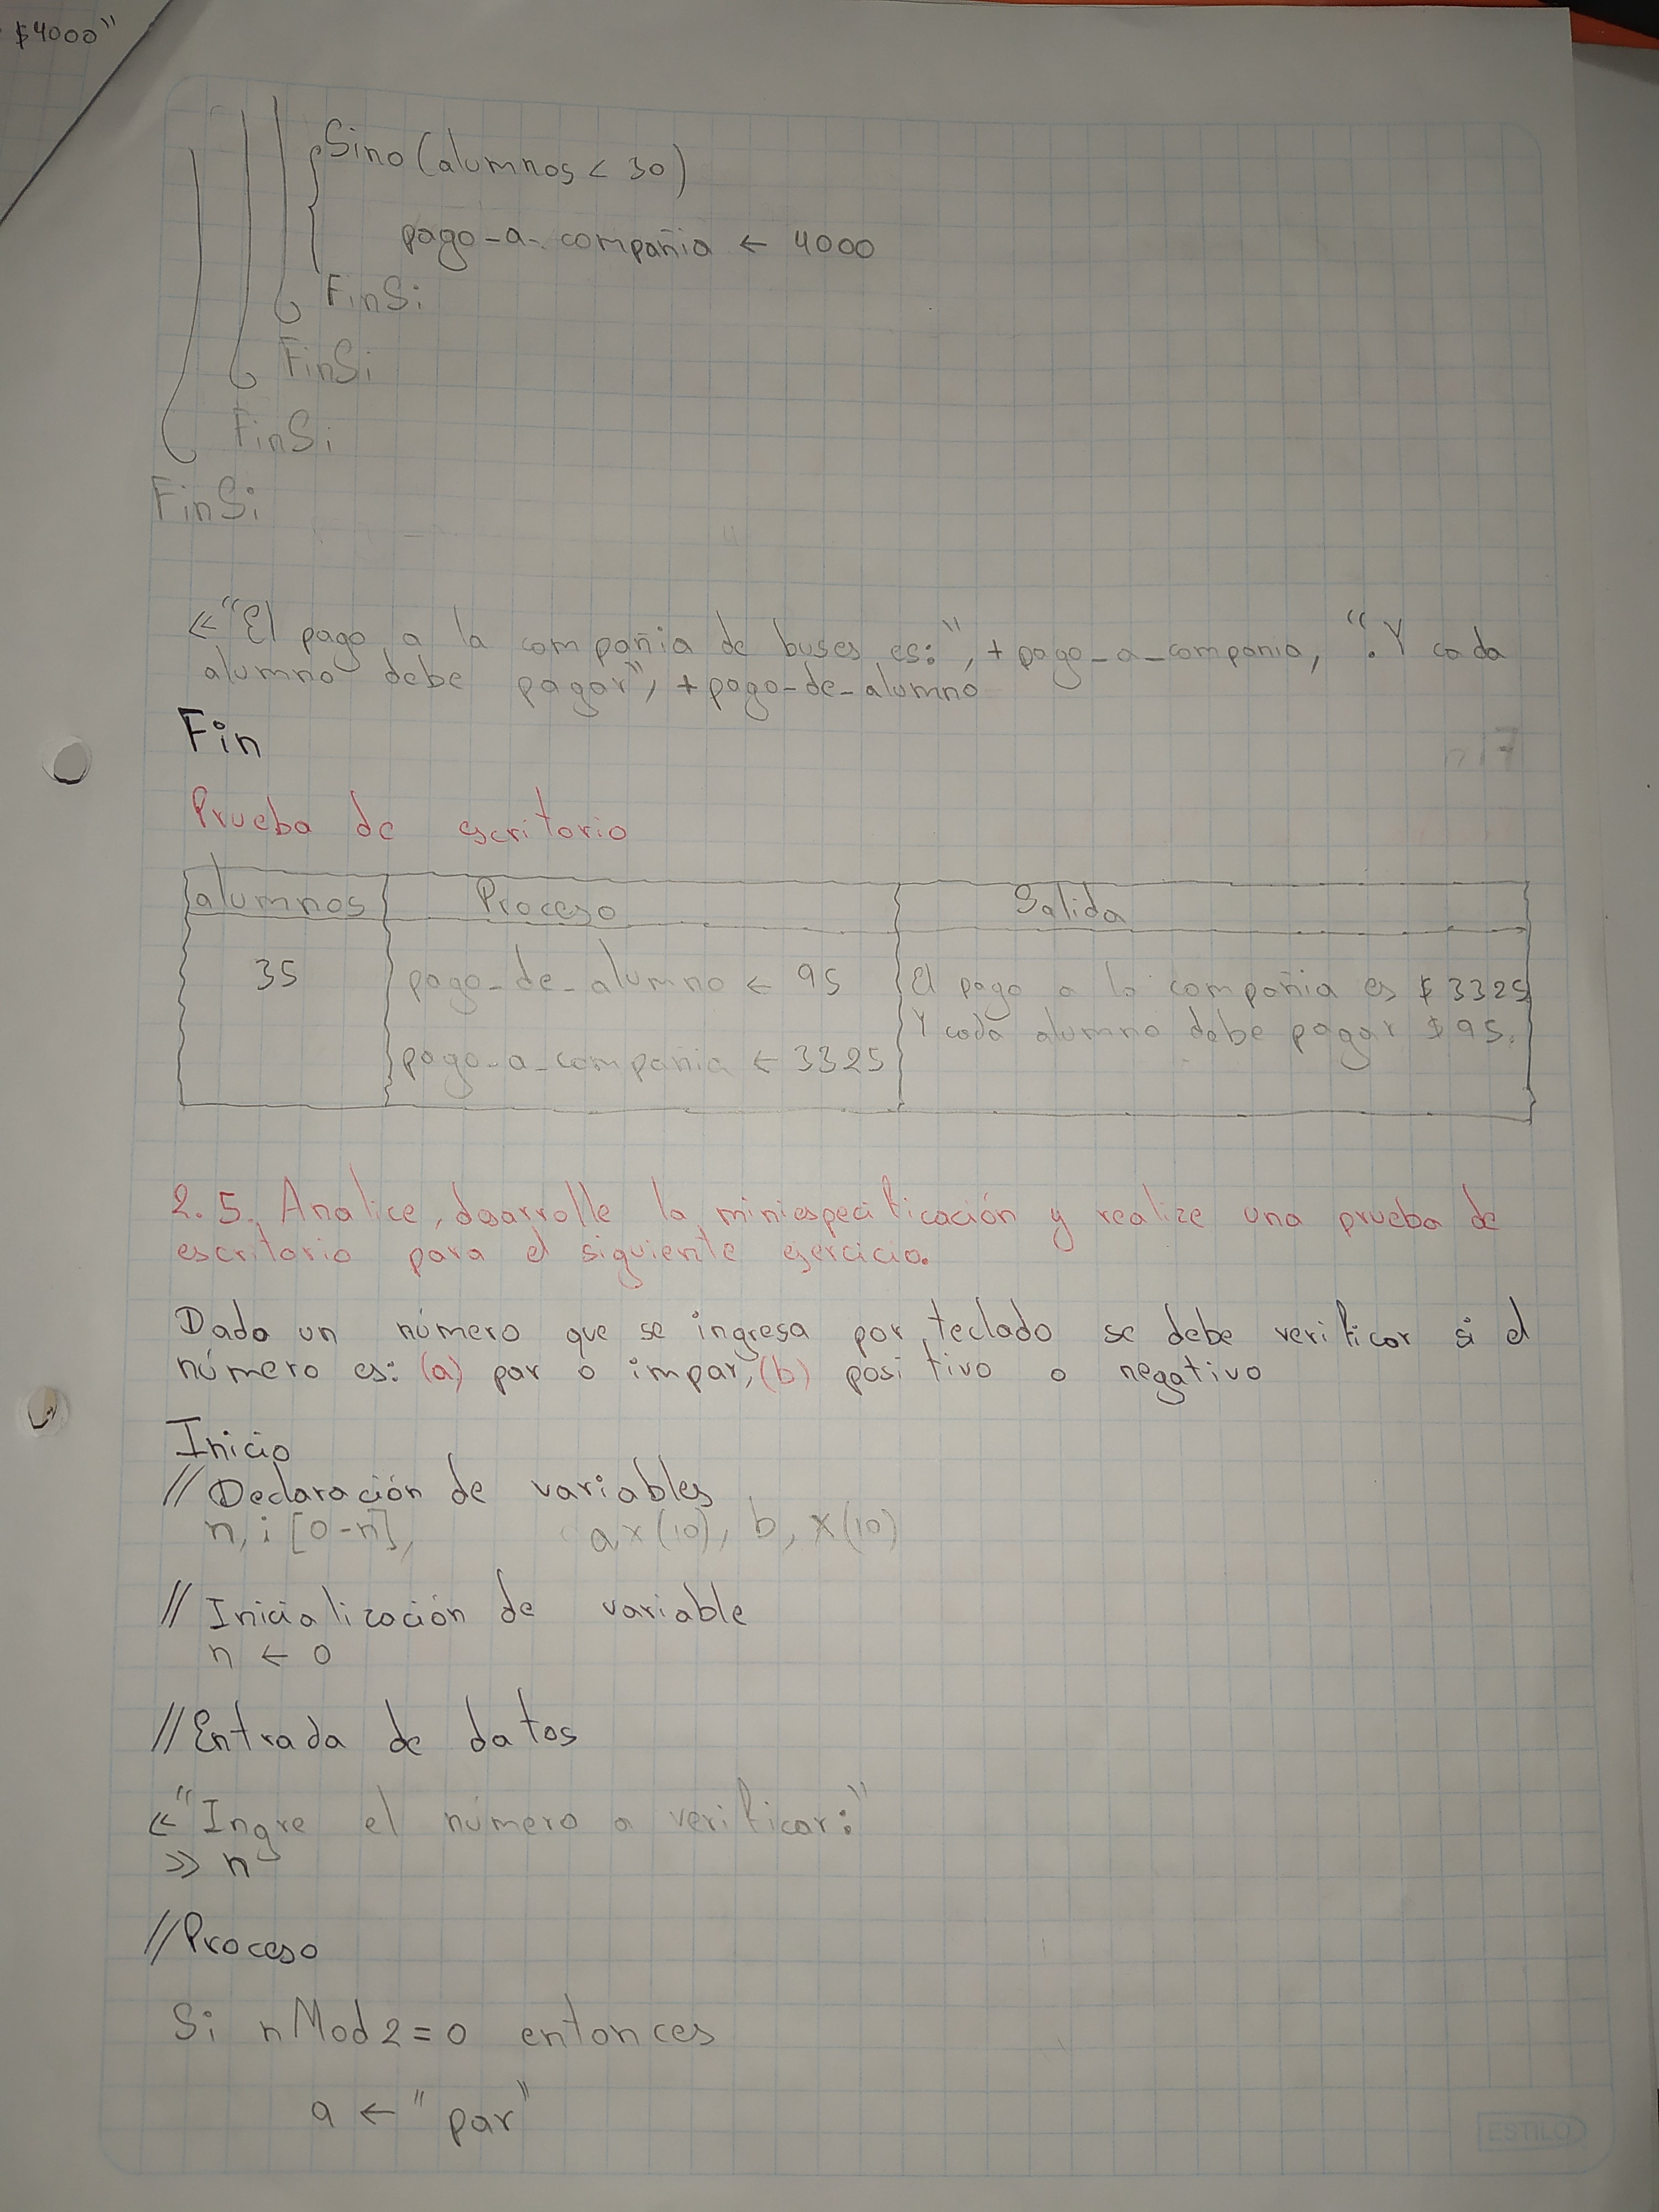 $4000"
Sino (alumnos < 30)
pago-a-compañia ← 4000
FinSi
FinSi
FinSi
FinSi
≪ "El pago a la compañia de buses es:", + pago_a_compania, ". Y cada
alumno debe pagar", + pago-de-alumno
Fin
Prueba de escritorio
alumnos Proceso Salida
35 pago-de-alumno ← 95 El pago a la compañia es $3325
Y cada alumno debe pagar $95.
pago-a-compañia ← 3325
2.5. Analice, desarrolle la miniespecificación y realize una prueba de
escritorio para el siguiente ejercicio.
Dado un número que se ingresa por teclado se debe verificar si el
número es: (a) par o impar, (b) positivo o negativo
Inicio
// Declaración de variables
n, i [0-n], a, x(10), b, x(10)
// Inicialización de variable
n ← 0
// Entrada de datos
≪ "Ingre el número a verificar:"
≫ n
// Proceso
Si n Mod 2 = 0 entonces
a ← "par"
ESTILO